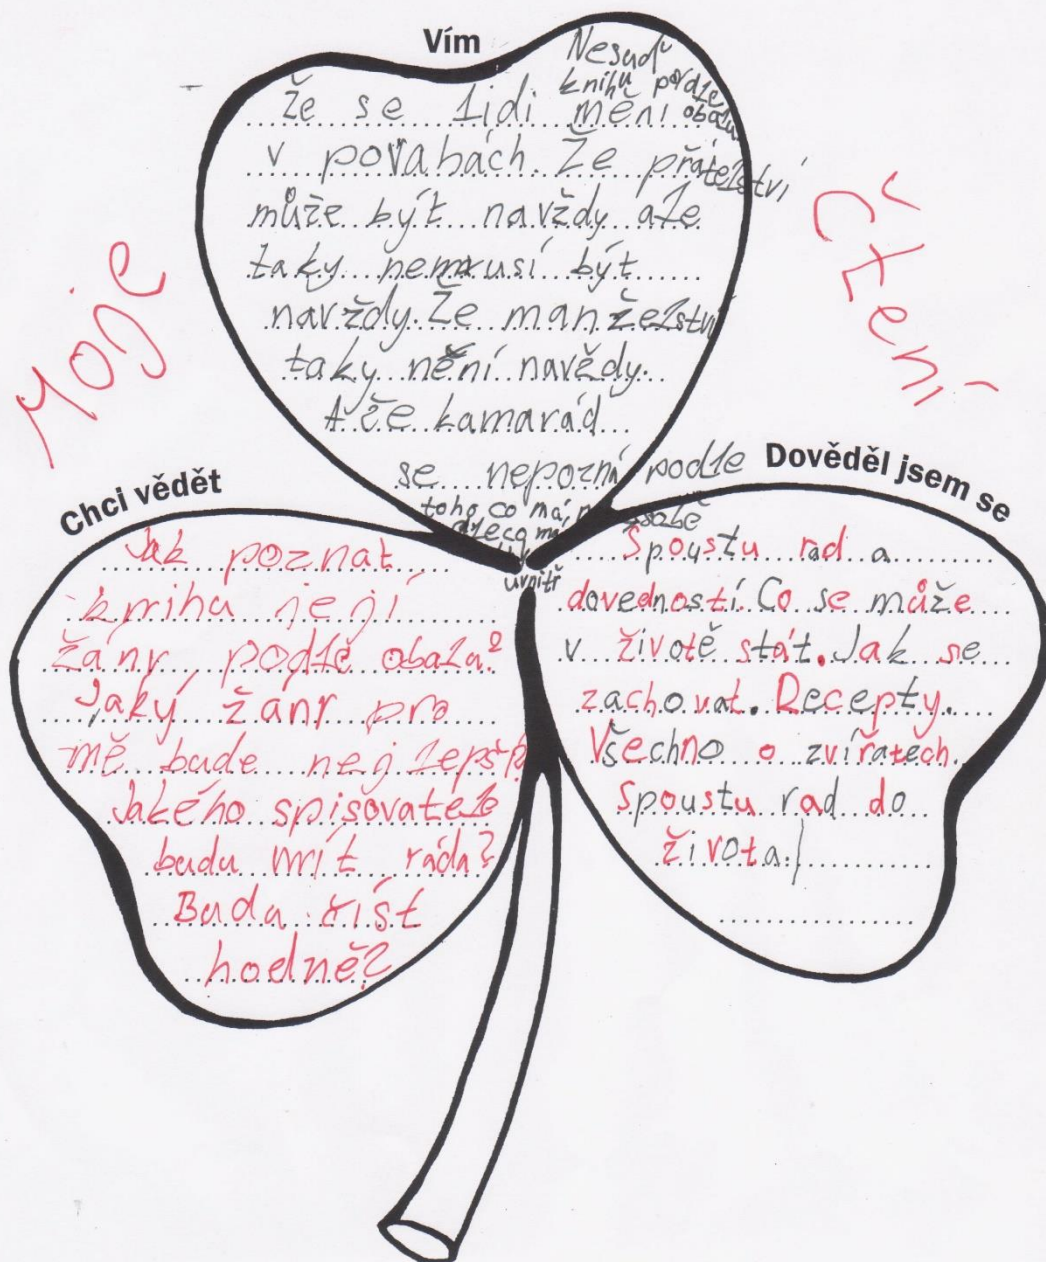 Moje
Čtení
Vím
Nesuď
knihu podle
obalu
Že se lidi mění
v povahách. Že přátelství
může být navždy ale
taky nemusí být
navždy. Že manželství
taky není navždy.
A že kamarád
se nepozní podle
toho co má, na sobě
ale co má
uvnitř
Chci vědět
Jak poznat
knihu její
žánr podle obalu?
Jaký žánr pro
mě bude nejlepší?
Jakého spisovatele
budu mít ráda?
Budu číst
hodně?
Dověděl jsem se
Spoustu rad a
dovedností. Co se může
v životě stát. Jak se
zachovat. Recepty.
Všechno o zvířatech.
Spoustu rad do
života.